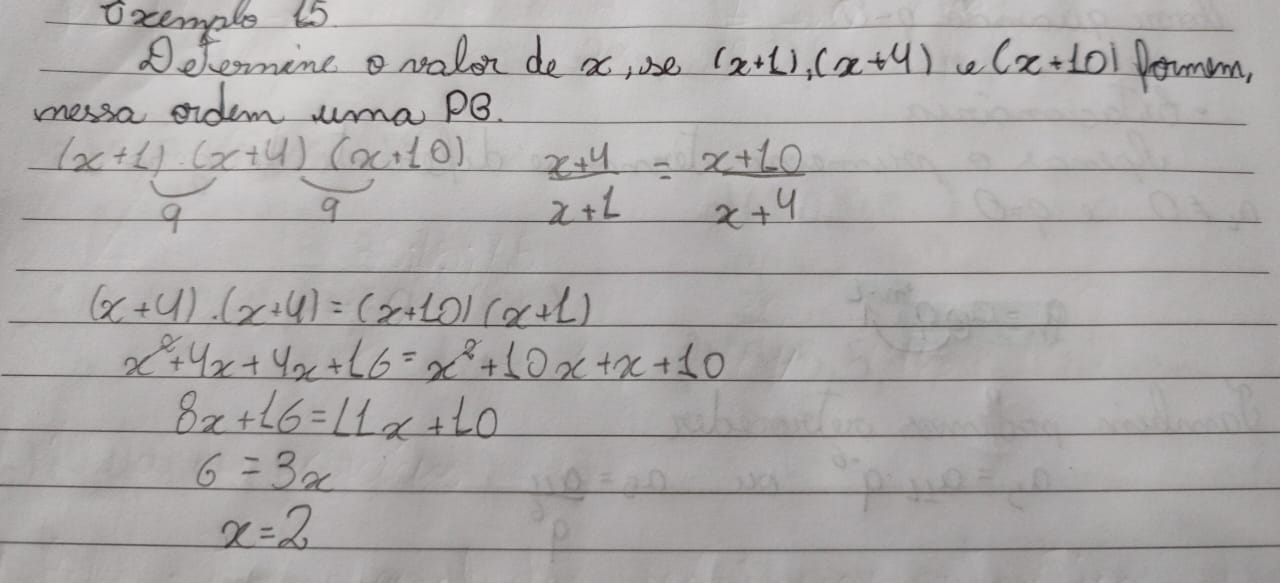 Exemplo 15
Determine o valor de x, se (x+1), (x+4) e (x+10) formem,
nessa ordem uma PG.
(x+1) . (x+4) (x+10) x+4/x+1 = x+10/x+4
q q
(x+4) . (x+4) = (x+10) (x+1)
x²+4x+4x+16 = x²+10x+x+10
8x+16=11x+10
6 = 3x
x=2